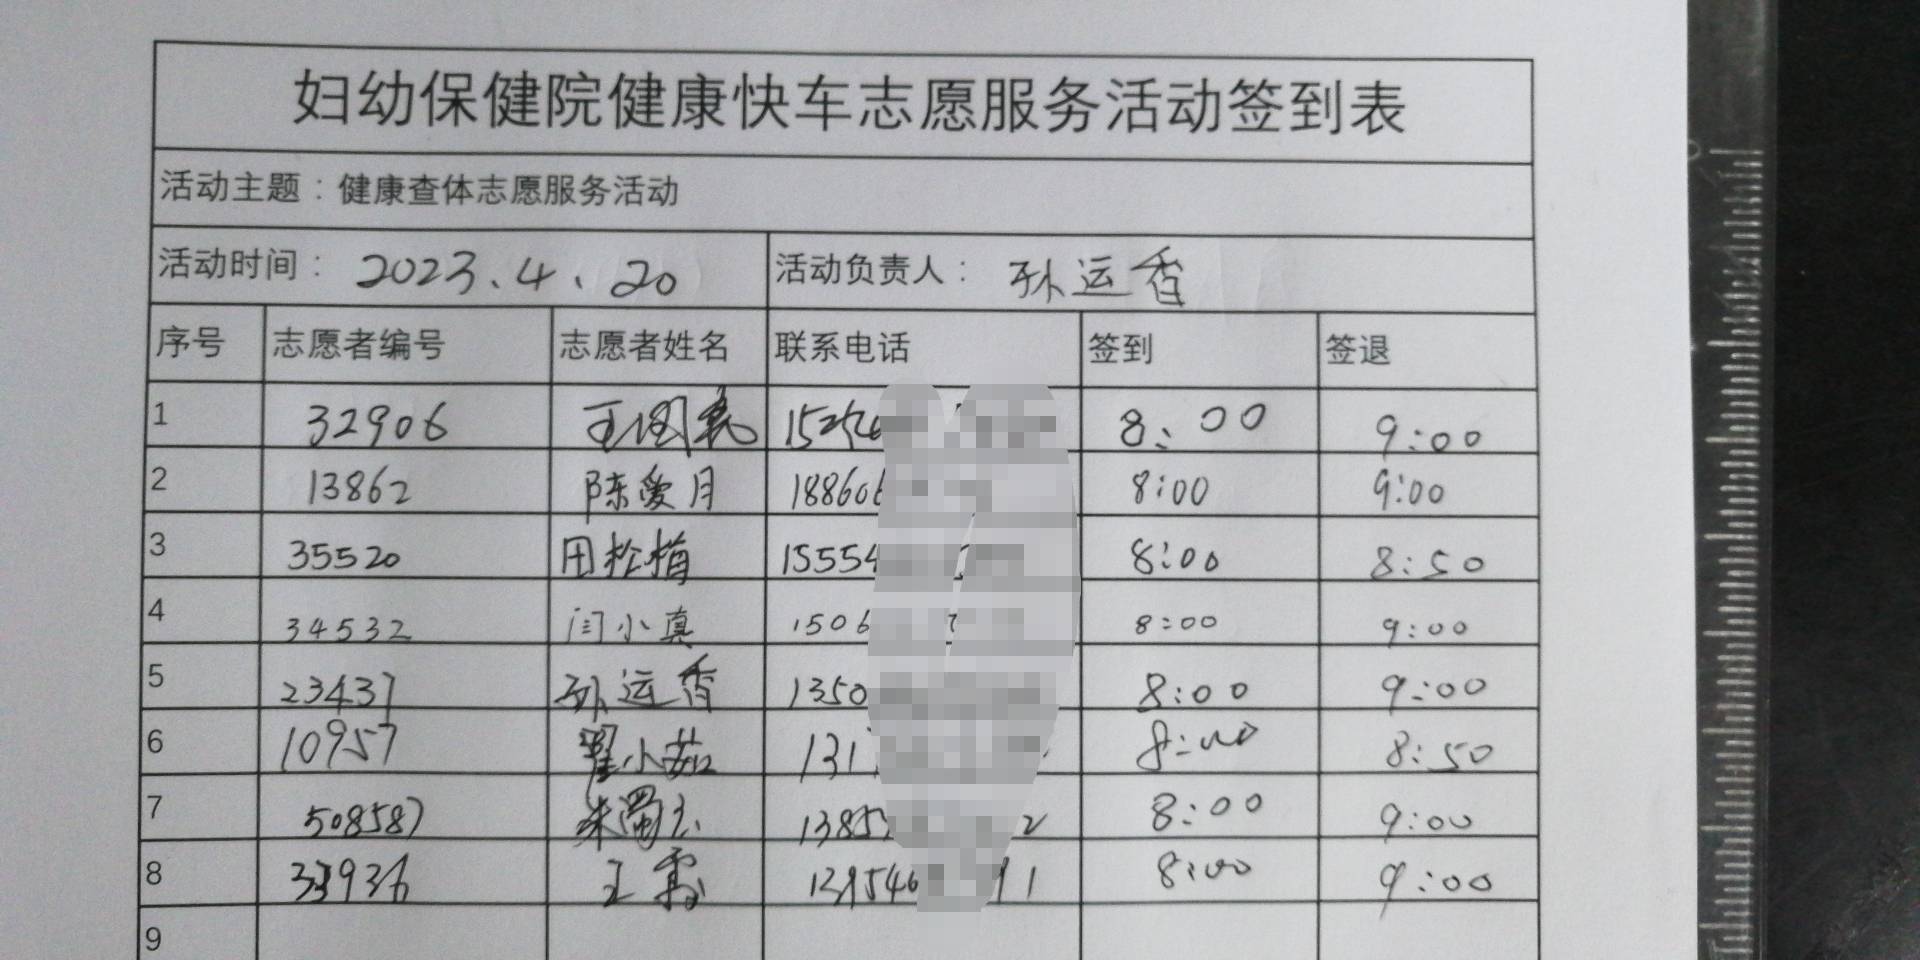 妇幼保健院健康快车志愿服务活动签到表
活动主题：健康查体志愿服务活动
活动时间：2023.4.20 活动负责人：孙运香
序号 志愿者编号 志愿者姓名 联系电话 签到 签退
1 32906 8:00 9:00
2 13862 陈爱月 18860 8:00 9:00
3 35520 田松梅 15554 8:00 8:50
4 34532 闫小真 1506 8:00 9:00
5 23437 孙运香 1350 8:00 9:00
6 10957 翟小茹 131 8:00 8:50
7 50858 1385 2 8:00 9:00
8 33936 王霞 139546 91 8:00 9:00
9